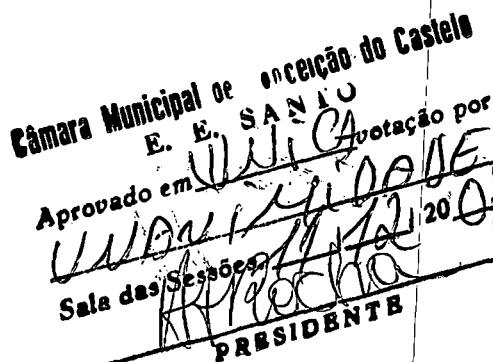 Câmara Municipal de onceição do Castelo
E. E. SANTO
Aprovado em UNICA votação por
UNANIMIDADE
Sala das Sessões, 12 20
PRESIDENTE